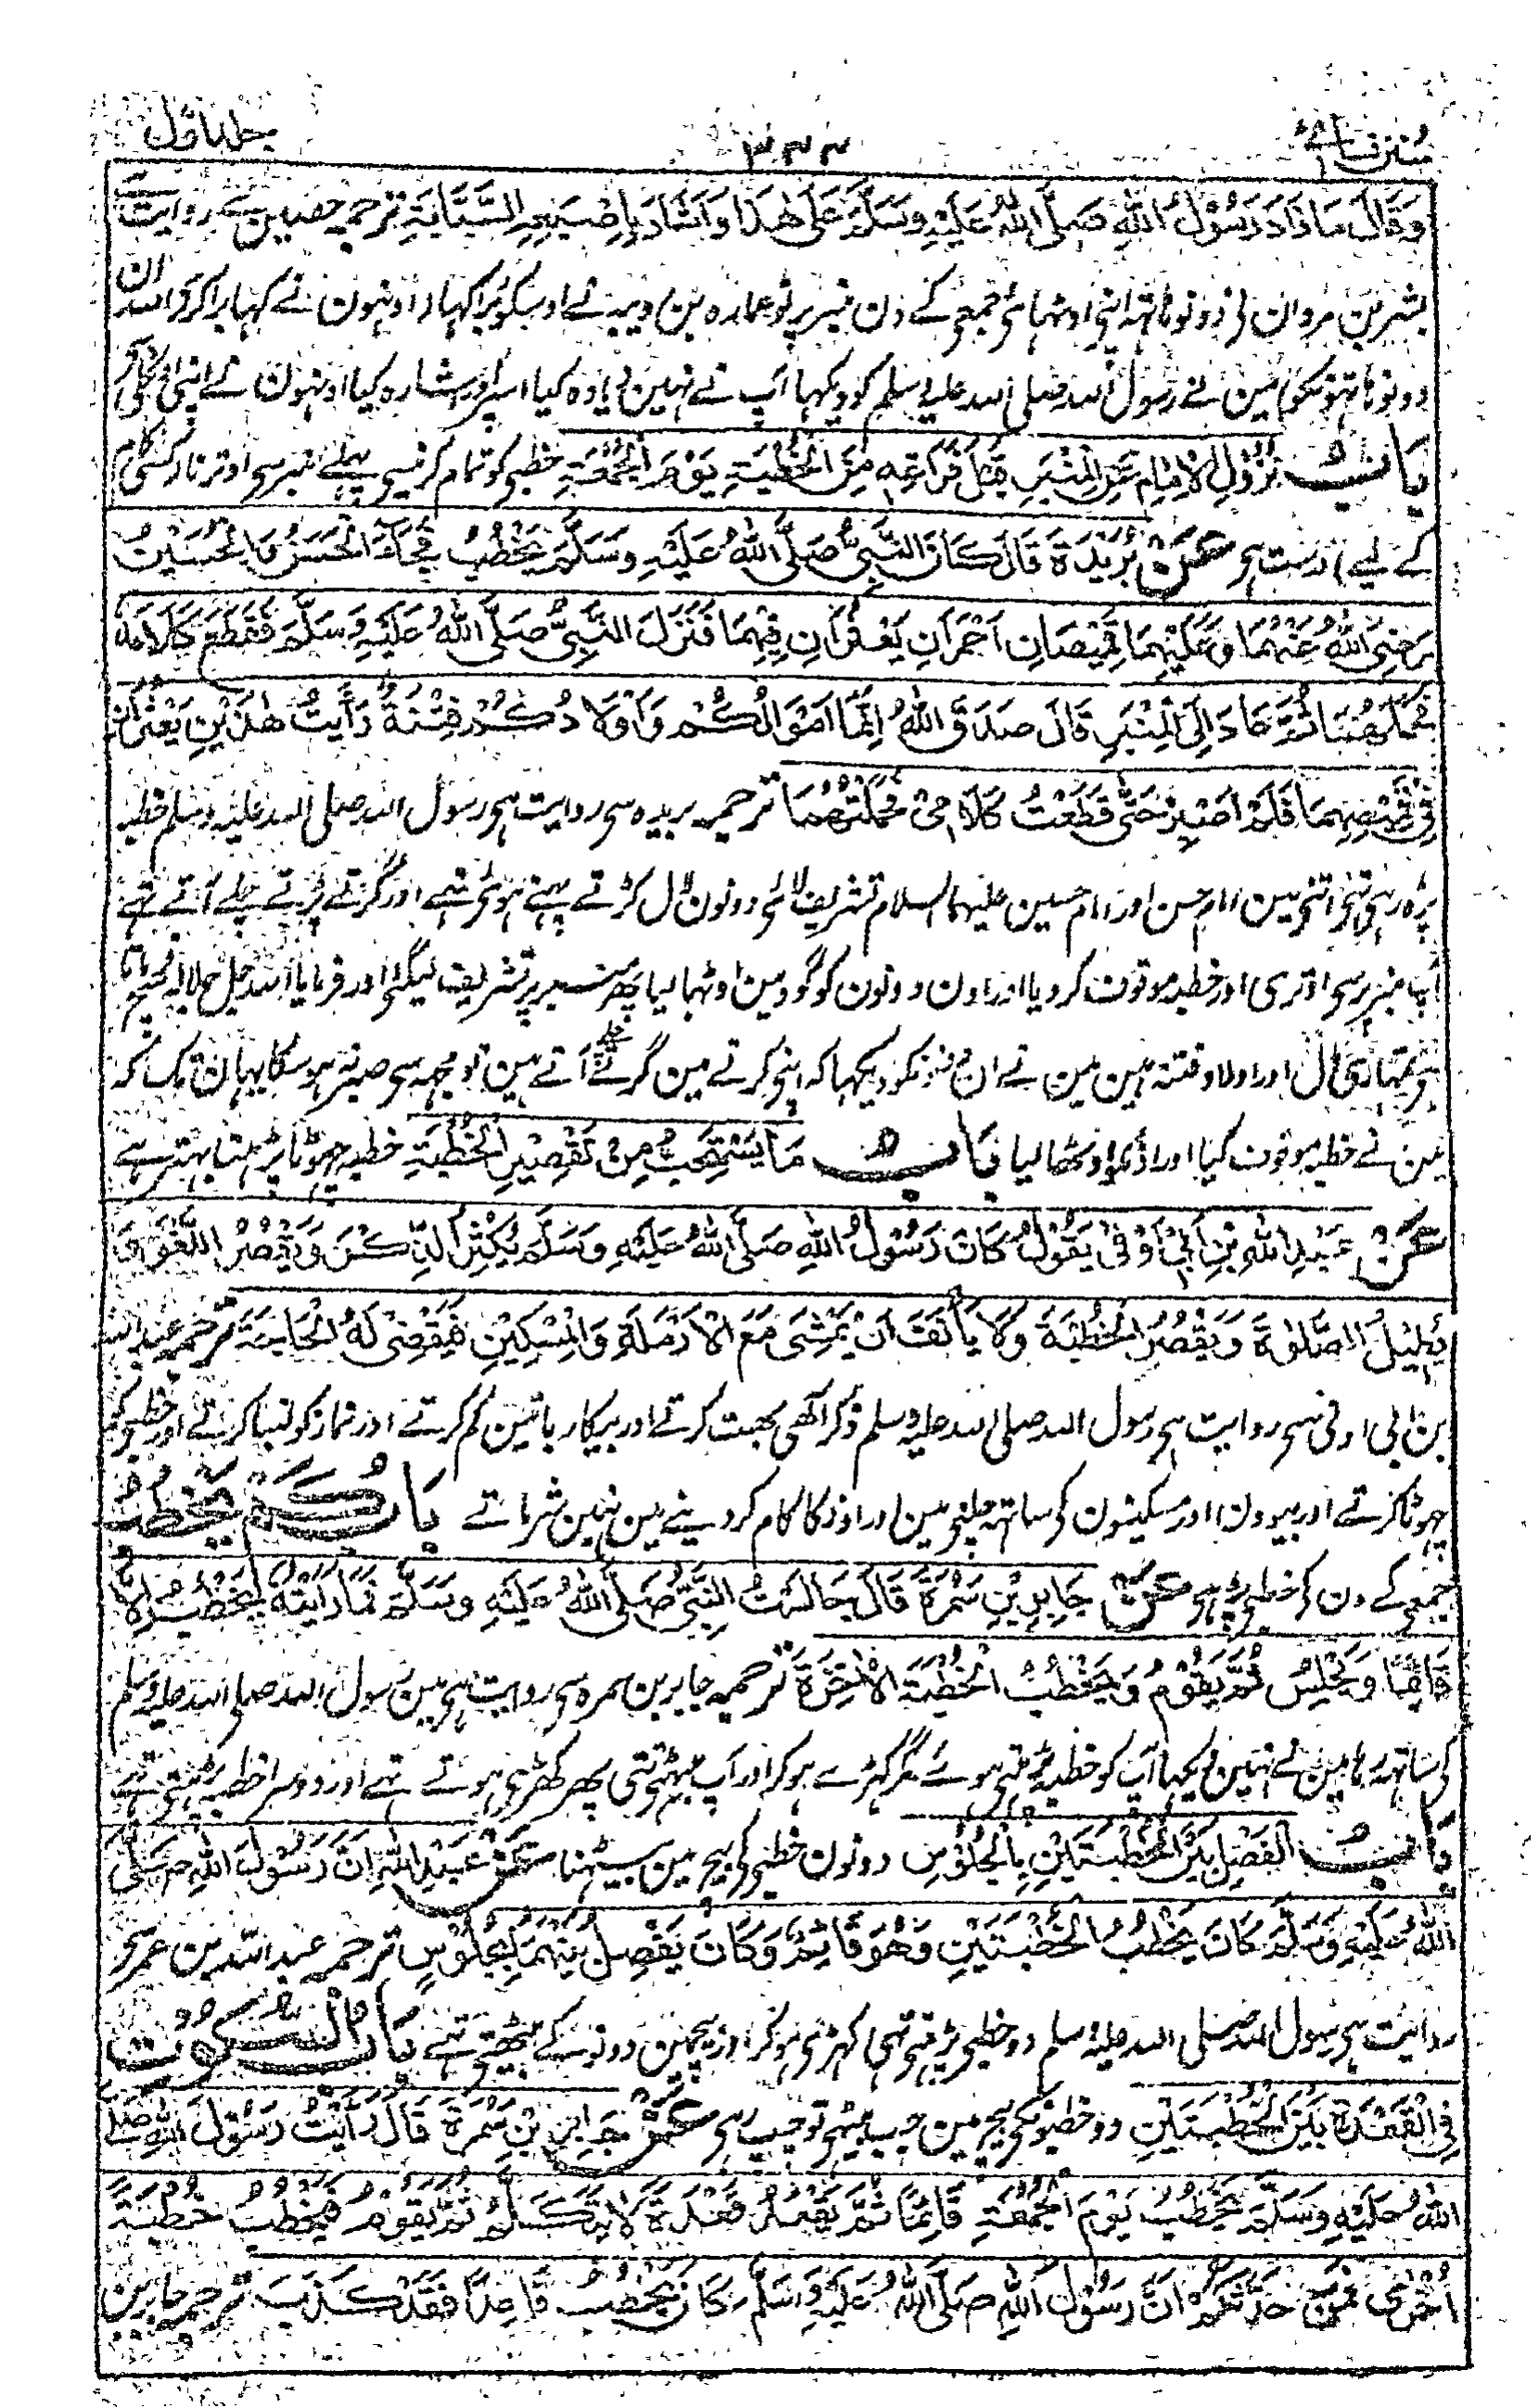 سنن نسائی ۳۴۴ جلد اول
وَقَالَ مَا زَادَ رَسُوْلُ اللهِ صَلَّى اللهُ عَلَيْهِ وَسَلَّمَ عَلَى هٰذَا وَاَشَارَ بِاِصْبَعِهِ السَّبَّابَةِ ترجمہ حصین سے روایت ہے
بشر بن مروان نی دونو ہاتہہ اپنی اوٹہائی جمعی کے دن منبر پر تو عمارہ بن رویبہ نے اوسکو برا کہا اور اونہون نے کہا برا کری اللہ ان
دونو ہاتہونکو مین نے رسول اللہ صلی اللہ علیہ وسلم کو دیکہا آپ نے نہین زیادہ کیا اسپر اور اشارہ کیا اونہون نے اپنی اونگلی
بَابُ نُزُوْلِ الْاِمَامِ عَنِ الْمِنْبَرِ قَبْلَ فَرَاغِهِ مِنَ الْخُطْبَةِ يَوْمَ الْجُمُعَةِ خطبی کو تمام کرنیسی پہلے منبر سی اوترنا (کسی کام
کے لیے) درست ہی عَنْ بُرَيْدَةَ قَالَ كَانَ النَّبِيُّ صَلَّى اللهُ عَلَيْهِ وَسَلَّمَ يَخْطُبُ فَجَاءَ الْحَسَنُ وَالْحُسَيْنُ
رَضِىَ اللهُ عَنْهُمَا وَعَلَيْهِمَا قَمِيْصَانِ اَحْمَرَانِ يَعْثُرَانِ فِيْهِمَا فَنَزَلَ النَّبِيُّ صَلَّى اللهُ عَلَيْهِ وَسَلَّمَ فَقَطَعَ كَلَامَهُ
فَحَمَلَهُمَا ثُمَّ عَادَ اِلَى الْمِنْبَرِ قَالَ صَدَقَ اللهُ اِنَّمَا اَمْوَالُكُمْ وَاَوْلَادُكُمْ فِتْنَةٌ رَاَيْتُ هٰذَيْنِ يَعْثُرَانِ
فِىْ قَمِيْصِهِمَا فَلَمْ اَصْبِرْ حَتّٰى قَطَعْتُ كَلَامِىْ فَحَمَلْتُهُمَا ترجمہ بریدہ سی روایت ہی رسول اللہ صلی اللہ علیہ وسلم خطبہ
پڑہ رہی تہی اتنی مین امام حسن اور امام حسین علیہما السلام تشریف لائی دونون لال کرتے پہنے ہوئی تہے اور گرتے پڑتے چلے آتے تہے
آپ منبر پر سی اوتری اور خطبہ موقوف کر دیا اور اون دونون کو گود مین اوٹہا لیا پہر منبر پر تشریف لیگئی اور فرمایا اللہ جل جلالہ
تمہاری مال اور اولاد فتنہ ہین مین نے ان دونونکو دیکہا کہ اپنی کرتے مین گرتے آتے ہین تو مجہہ سی صبر نہ ہو سکا یہان تک کہ
مین نے خطبہ موقوف کیا اور اونکو اوٹھا لیا بَابُ مَا يُسْتَحَبُّ مِنْ تَقْصِيْرِ الْخُطْبَةِ خطبہ چہوٹا پڑہنا بہتر ہے
عَنْ عَبْدِ اللهِ بْنِ اَبِىْ اَوْفٰى يَقُوْلُ كَانَ رَسُوْلُ اللهِ صَلَّى اللهُ عَلَيْهِ وَسَلَّمَ يُكْثِرُ الذِّكْرَ وَيُقِلُّ اللَّغْوَ وَ
يُطِيْلُ الصَّلٰوةَ وَيَقْصُرُ الْخُطْبَةَ وَلَا يَاْنَفُ اَنْ يَمْشِىَ مَعَ الْاَرْمَلَةِ وَالْمِسْكِيْنِ فَيَقْضِىَ لَهُ الْحَاجَةَ ترجمہ عبد اللہ
بن ابی اوفی سی روایت ہی رسول اللہ صلی اللہ علیہ وسلم ذکر الٰہی بہت کرتے اور بیکار باتین کم کرتے اور نماز کو لنبا کرتے اور خطبی کو
چہوٹا کرتے اور بیوون اور مسکینون کی ساتہہ چلنی مین اور اونکا کام کر دینے مین نہین شرماتے بَابُ كَمْ يَخْطُبُ
جمعی کے دن کی خطبی پڑہی عَنْ جَابِرِ بْنِ سَمُرَةَ قَالَ جَالَسْتُ النَّبِىَّ صَلَّى اللهُ عَلَيْهِ وَسَلَّمَ فَمَا رَاَيْتُهُ يَخْطُبُ اِلَّا
قَائِمًا وَيَجْلِسُ ثُمَّ يَقُوْمُ وَيَخْطُبُ الْخُطْبَةَ الْاٰخِرَةَ ترجمہ جابر بن سمرہ سی روایت ہی مین رسول اللہ صلی اللہ علیہ وسلم
کی ساتہہ رہا مین نے نہین دیکہا آپ کو خطبہ پڑہتی ہوئے مگر کہڑے ہو کر اور آپ بیٹہتی تہی پہر کہڑی ہوتے تہے اور دوسرا خطبہ پڑہتی تہے
بَابُ الْفَصْلِ بَيْنَ الْخُطْبَتَيْنِ بِالْجُلُوْسِ دونون خطبی کی بیچ مین بیٹہنا عَنْ عَبْدِ اللهِ اَنَّ رَسُوْلَ اللهِ صَلَّى
اللهُ عَلَيْهِ وَسَلَّمَ كَانَ يَخْطُبُ الْخُطْبَتَيْنِ وَهُوَ قَائِمٌ وَكَانَ يَفْصِلُ بَيْنَهُمَا بِجُلُوْسٍ ترجمہ عبد اللہ بن عمر سی
روایت ہی رسول اللہ صلی اللہ علیہ وسلم دو خطبی پڑہتی تہی کہڑی ہو کر اور بیچمین دونو کے بیٹھتی تہے بَابُ السُّكُوْتِ
فِى الْقَعْدَةِ بَيْنَ الْخُطْبَتَيْنِ دو خطبونکی بیچ مین جب بیٹہی تو چپ رہی عَنْ جَابِرِ بْنِ سَمُرَةَ قَالَ رَاَيْتُ رَسُوْلَ اللهِ صَلَّى
اللهُ عَلَيْهِ وَسَلَّمَ يَخْطُبُ يَوْمَ الْجُمُعَةِ قَائِمًا ثُمَّ يَقْعُدُ قَعْدَةً لَا يَتَكَلَّمُ ثُمَّ يَقُوْمُ فَيَخْطُبُ خُطْبَةً
اُخْرٰى فَمَنْ حَدَّثَكُمْ اَنَّ رَسُوْلَ اللهِ صَلَّى اللهُ عَلَيْهِ وَسَلَّمَ كَانَ يَخْطُبُ قَاعِدًا فَقَدْ كَذَبَ ترجمہ جابر بن